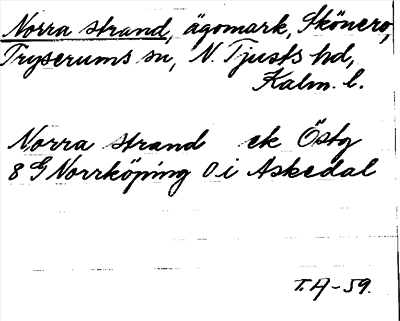 Norra strand, ägomark, Skönero,
Tryserums sn, N. Tjusts hd,
Kalm. l.
Norra strand ek Östg
8 G Norrköping Öi Askedal
T.A-59.